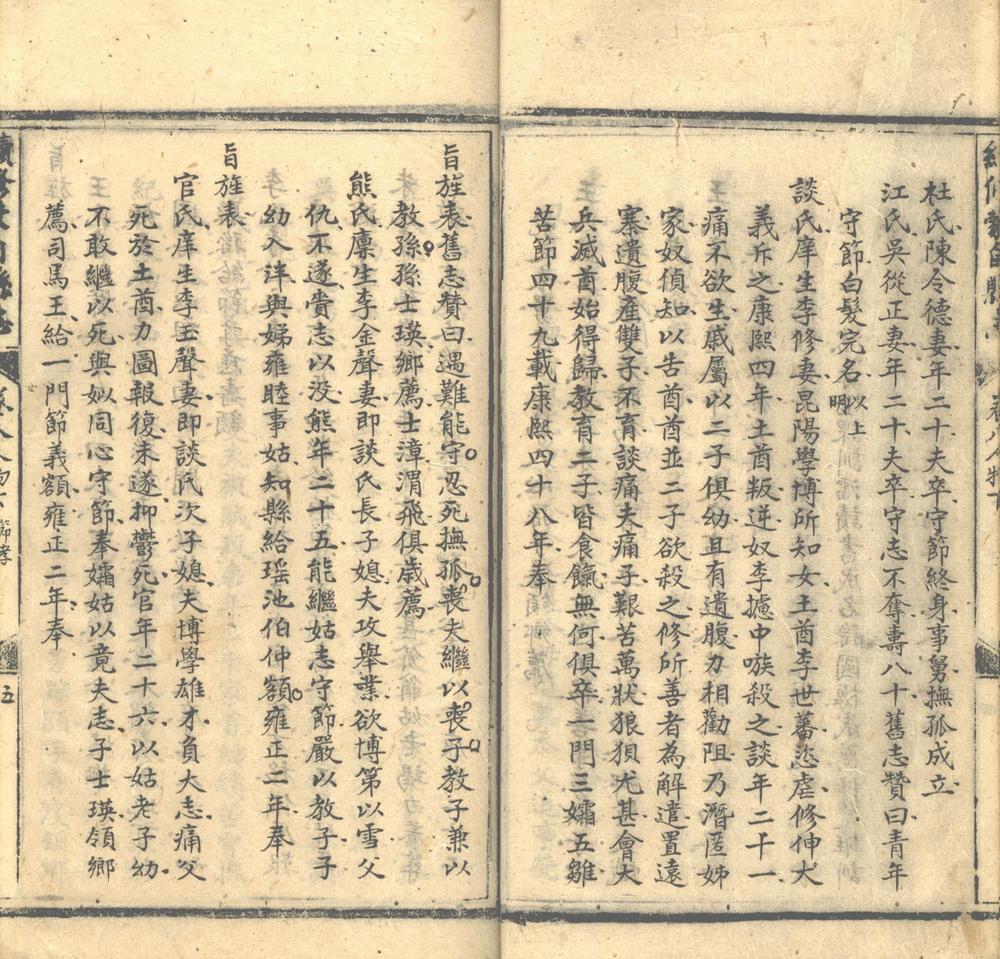 杜氏陳令德妻年二十夫卒守節終身事舅撫孤成立
江氏吳從正妻年二十夫卒守志不奪壽八十舊志贊曰青年
守節白髮完名以上明
談氏庠生李修妻昆陽學博所知女王酋李世蕃恣虐修伸大
義斥之康熙四年土酋叛逆奴李攄中嗾殺之談年二十一
痛不欲生戚屬以二子俱幼且有遺腹力相勸阻乃潛匿姊
家奴偵知以告酋酋並二子欲殺之修所善者為解遣置遠
寨遺腹產雙子不育談痛夫痛子艱苦萬狀狼狽尤甚會大
兵滅酋始得歸教育二子皆食餼無何俱卒一門三孀五雛
苦節四十九載康熙四十八年奉
旨旌表舊志贊曰遇難能守忍死撫孤喪夫繼以喪子教子兼以
教孫孫士瑛鄉薦士漳渭飛俱歲薦
熊氏廩生李金聲妻即談氏長子媳夫攻舉業欲博第以雪父
仇不遂賫志以没熊年二十五能繼姑志守節嚴以教子子
幼入泮與娣雍睦事姑知縣給瑶池伯仲額雍正二年奉
旨旌表
官氏庠生李玉聲妻即談氏次子媳夫博學雄才負大志痛父
死於土酋力圖報復未遂抑鬱死官年二十六以姑老子幼
不敢繼以死與姒同心守節奉孀姑以竟夫志子士瑛領鄉
薦司馬王給一門節義額雍正二年奉
節孝
五